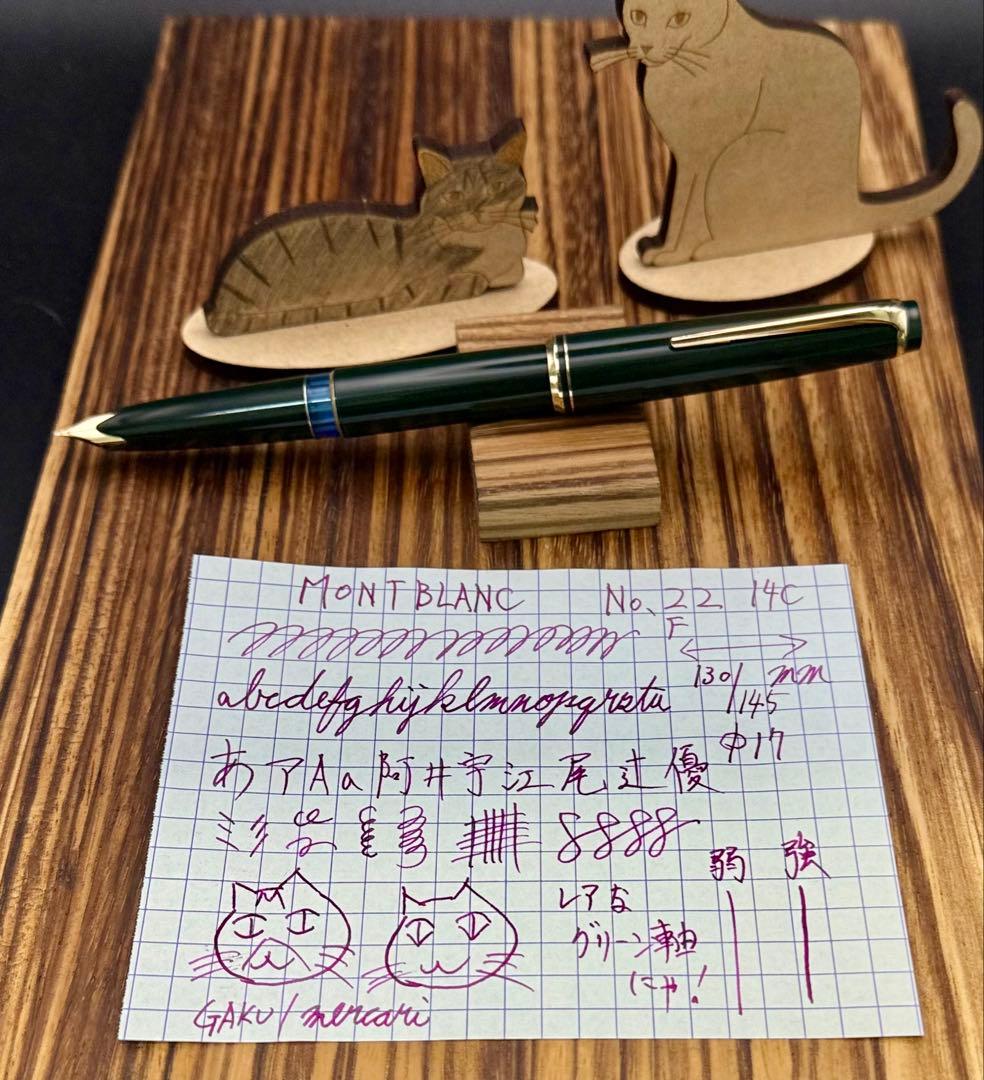 MONTBLANC No. 22 14C
F
130/145 mm
abcdefghijklmnopqrstu
φ17
あアAa阿井宇江尾辻優
弱 強
レアな
グリーン軸
にゃ!
GAKU/mercari